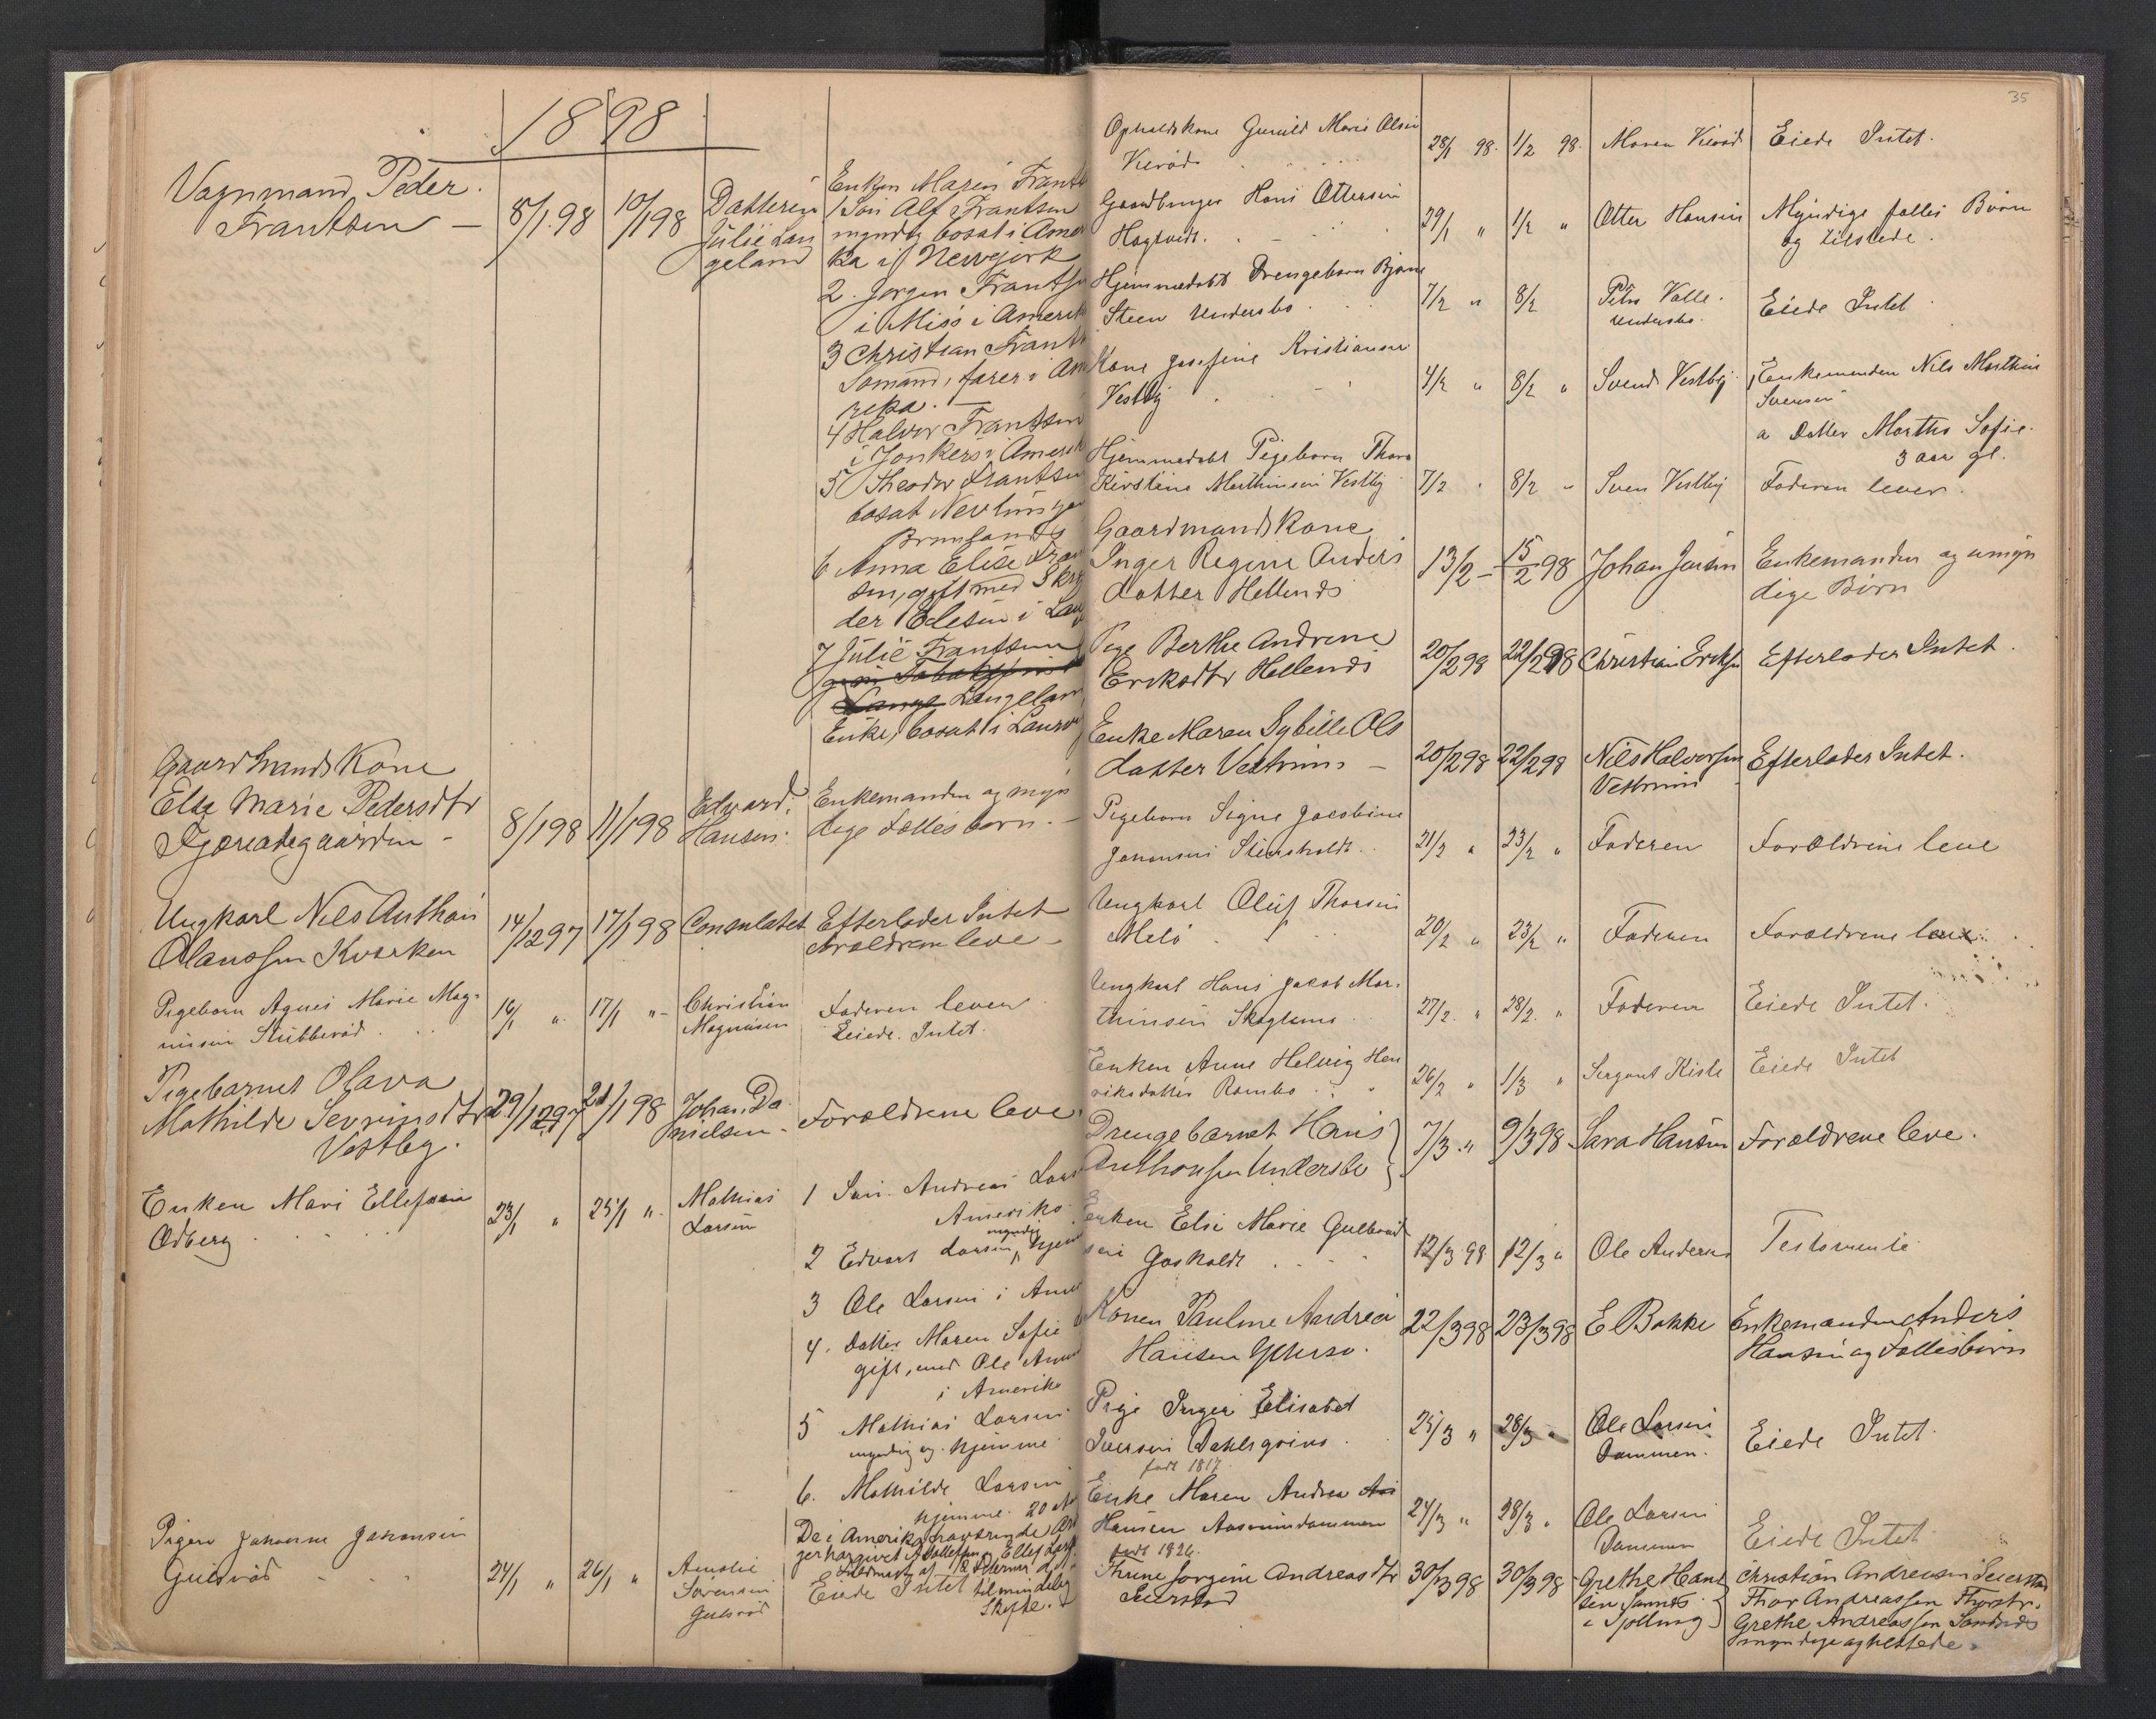 1898
Vognmand Peder
Frantsen — 8/1.98 10/1 98 Datteren
Julie Lan
geland
Enken Maren Frants
1 Søn Alf Frantsen
myndig bosat i Ame
ka i Newyork
2. Jørgen Frantse
i Miss i Amerik
3 Christian Frants
Sømand, farer i Am
reka. —
4 Halvor Frantsen
i Jonkers i Amerik
5 Theodor Frantsen
bosat Nevlung
Brunlanes
6 Anna Elise Fran
sen, gift med Skr
der Edesen i Lau
7 Julie Frantsen
Lange Langelan
Enke, bosat i Laurv
Gaardmands Kone
Else Marie Pedersdtr
Fjæreadegaarden - 8/1 98 11/1 98 Edvard
Hansen.
Enkemanden og myn
dige Fællesbørn. —
Ungkarl Nils Anthon
Olaussen Kværken 14/12 97 17/1 98 Consulatet Efterlader Intet
Forældrene leve -
Pigebarn Agnes Marie Mag-
nusen Stubberød 16/1 " 17/1 " Christian
Magnusen
Faderen lever
Eiede Intet.
Pigebarnet Olava
Mathilde Sevrinsdtr
Vestby. 29/12 97 21/1 98 Johan Da
nielsen - Forældrene leve.
Enken Mari Ellefsen
Ødberg 23/1 " 25/1 " Mathias
Larsen
1 Søn Andreas Lars
Amerika
2 Edvart Larsen, myndig hjem
3 Ole Larsen i Ame
4. Datter Maren Sofie
gift, med Ole
i Amerika
5 Mathias Larsen
myndig og hjemme
6. Mathilde Larsen
hjemme. 20 a
De i Amerika
Eiede Intet til mindelig
Skifte.
Pigen Johanne Johansen
Gulsrød 24/1 " 26/1 " Amalie
Sørensen
Gulsrød
35
Opholdskone Gunild Marie Olsen
Vierød 28/1 98. 1/2 98. Maren Vierød Eiede Intet.
Gaardbruger Hans Ottersen
Hagtvedt. 29/1 " 1/2 " Otter Hansen Myndige fælles Børn
og tilstede.
Hjemmedøbt Drengebarn Bjarne
Steen Undersbo 7/2 " 8/2 Petra Valle.
Undersbo. Eiede Intet
Kone Josefine Kristiansen
Vestby 4/2 " 8/2 " Svend Vestby Enkemanden Nils Marthin
Svensen
a Datter Martha Sofie.
3 aar gl.
Hjemmedøbt Pigebarn Thora
Kirstine Marthinsen Vestby 7/2 " 8/2 " Sven Vestby Faderen lever.
Gaardmands Kone
Inger Regine Anders
datter Hellenes 13/2 — 15/2 98 Johan Jensen Enkemanden og umyn
dige Børn
Pige Berthe Andrene
Eriksdtr Hellenes 20/2 98 22/2 98 Christian Eriksen Efterlader Intet.
Enke Maren Sybille Ols
datter Vestrum — 20/2 98 22/2 98 Nils Halvorsen
Vestrum Efterlader Intet.
Pigebarn Signe Jacobine
Johansen Stensholdt 21/2 " 23/2 " Faderen Forældrene leve
Ungkarl Oluf Thorsen
Melø 20/2 " 23/2 " Faderen Forældrene leve
Ungkarl Hans Jacob Mar-
thinsen Skoglund 27/2. " 28/2. " Faderen Eiede Intet.
Enken Anne Helvig Hen
riksdatter Rambo 26/2 " 1/3 " Sergant Kiste Eiede Intet
Drengebarnet Hans
Anthonsen Undersbo 7/3 " 9/3 98 Sara Hansen Forældrene leve.
Enken Elsi Marie Gulbrand
sen Gasholdt 12/3 98 12/3 " Ole Anderss Testamente
Konen Pauline Andrea
Hansen Ytterso. 22/3 98 23/3 98 E Bakke Enkemanden Anders
Hansen og Fællesbørn
Pige Inger Elisabet
Iversen Dahlsgrind
født 1817 25/3 " 28/3 " Ole Larsen
Dammen. Eiede Intet.
Enke Maren Andrea
Hansen Aasrumdammen
født 1826. 24/3 " 28/3 " Ole Larsen
Dammen Eiede Intet
Thrine Jørgine Andreasdtr
Seierstad 30/3 98 30/3 98 Grethe Hans
sen Sannes
i Tjølling
Christian Andreassen Seierstad
Thor Andreassen Thorstr.
Grethe Andreassen Sandnæs
myndige og tilstede.